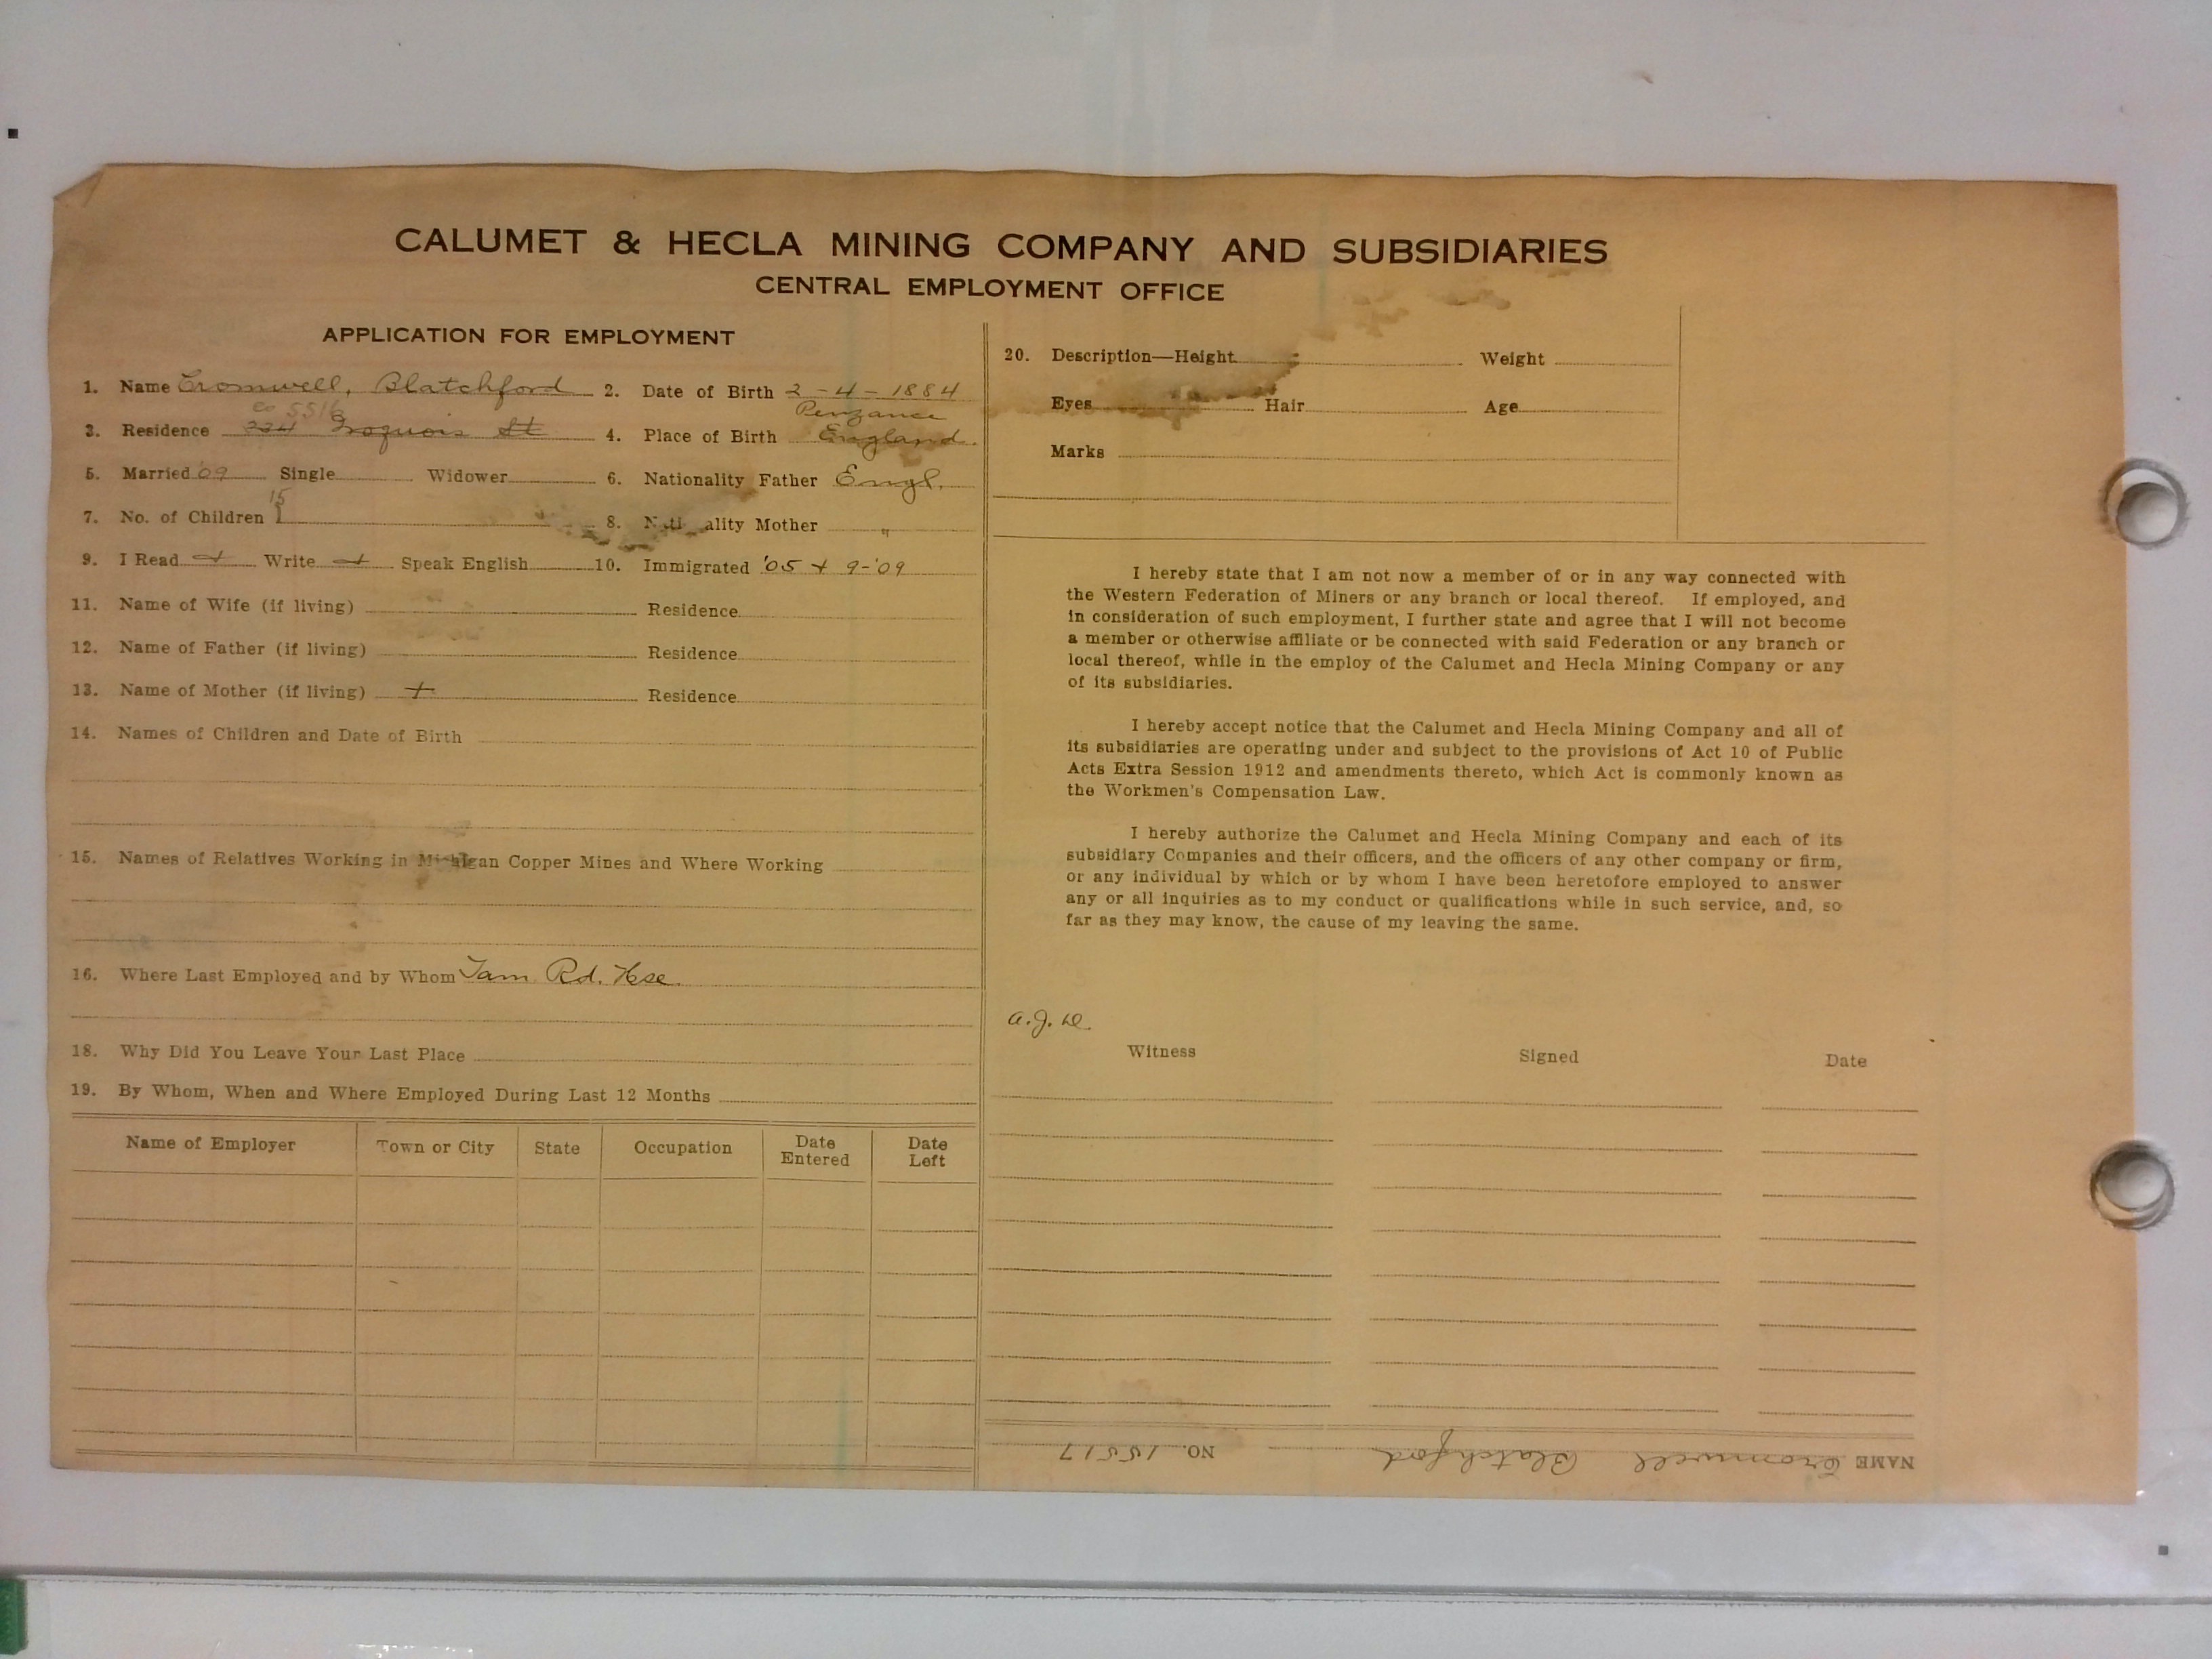 CALUMET & HECLA MINING COMPANY AND SUBSIDIARIES
CENTRAL EMPLOYMENT OFFICE
APPLICATION FOR EMPLOYMENT
1. Name Cromwell, Blatchford 2. Date of Birth 2-4-1884
Co 5516
Penzance
3. Residence Iroquois St 4. Place of Birth England.
5. Married '09 Single Widower 6. Nationality Father Engl.
15
7. No. of Children 1 8. Nationality Mother "
9. I Read + Write + Speak English 10. Immigrated '05 + 9-'09
11. Name of Wife (if living) Residence
12. Name of Father (if living) Residence
13. Name of Mother (if living) + Residence
14. Names of Children and Date of Birth
15. Names of Relatives Working in Michigan Copper Mines and Where Working
16. Where Last Employed and by Whom Tam Rd. Hse.
18. Why Did You Leave Your Last Place
19. By Whom, When and Where Employed During Last 12 Months
Name of Employer Town or City State Occupation Date Entered Date Left
20. Description—Height Weight
Eyes Hair Age
Marks
I hereby state that I am not now a member of or in any way connected with
the Western Federation of Miners or any branch or local thereof. If employed, and
in consideration of such employment, I further state and agree that I will not become
a member or otherwise affiliate or be connected with said Federation or any branch or
local thereof, while in the employ of the Calumet and Hecla Mining Company or any
of its subsidiaries.
I hereby accept notice that the Calumet and Hecla Mining Company and all of
its subsidiaries are operating under and subject to the provisions of Act 10 of Public
Acts Extra Session 1912 and amendments thereto, which Act is commonly known as
the Workmen's Compensation Law.
I hereby authorize the Calumet and Hecla Mining Company and each of its
subsidiary Companies and their officers, and the officers of any other company or firm,
or any individual by which or by whom I have been heretofore employed to answer
any or all inquiries as to my conduct or qualifications while in such service, and, so
far as they may know, the cause of my leaving the same.
Witness Signed Date
NAME Cromwell Blatchford NO. 15517